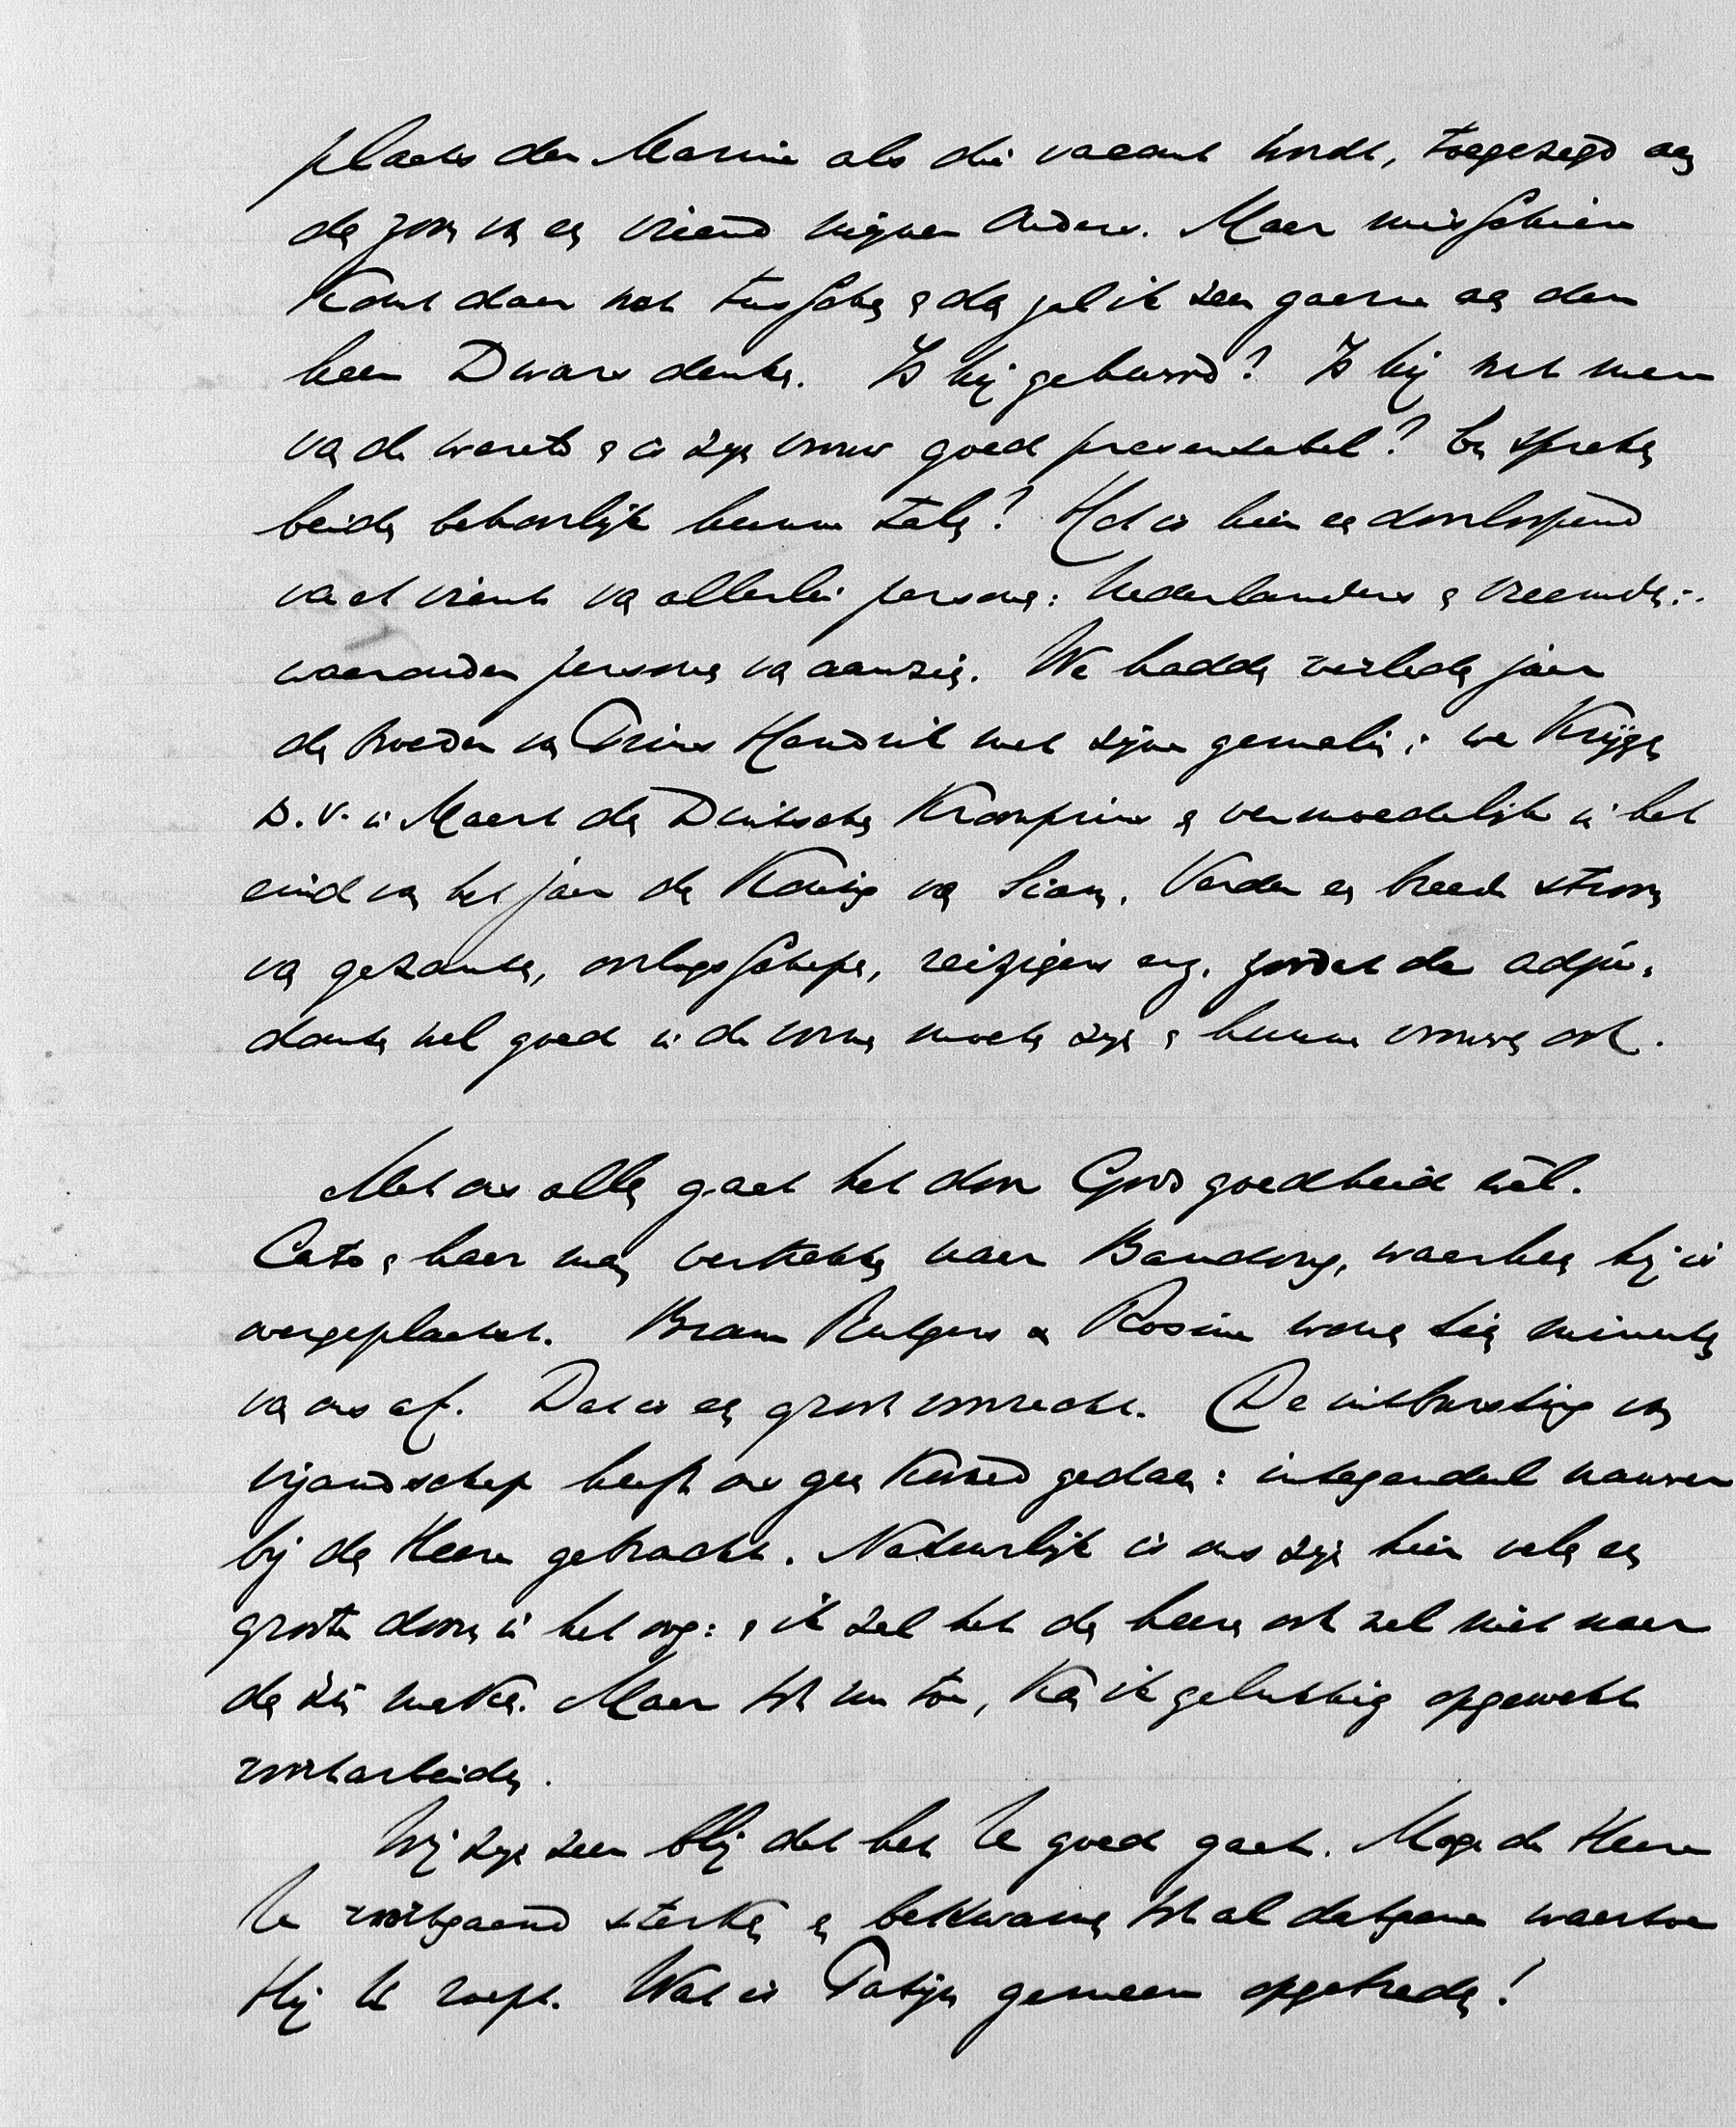 plaats der Marine als die vacant wordt, toegezegd aan
den zoon van een vriend mijner Ouders. Maar misschien
komt daar wat tusschen en dan zal ik zeer gaarne aan den
heer Dwars denken. Is hij gehuwd? Is hij wat men
van de wereld en is zijn vrouw goed presentabel? En spreken
beiden behoorlijk hunne talen? Het is hier een doorloopend
va et vient van allerlei personen: Nederlanders en vreemden:
waaronder personen van aanzien. We hadden verleden jaar
den broeder van Prins Hendrik met zijne gemalin; we krijgen
D.V. in Maart den Duitschen Kroonprins en vermoedelijk in het
eind van het jaar den Koning van Siam. Verder een breede stroom
van gezanten, oorlogsschepen, reizigers enz. zoodat de adju-
danten wel goed in de vorm moeten zijn en hunne vrouwen ook.
Met ons allen gaat het door Gods goedheid wèl.
Cato en haar man vertrekken naar Bandong, waarheen hij is
overgeplaatst. Bram Rutgers en Rosine wonen tien minuten
van ons af. Dat is een groot voorrecht. De uitbarsting van
vijandschap heeft ons geen kwaad gedaan: integendeel nauwer
bij den Heere gebracht. Natuurlijk is ons zijn hier velen een
groote doorn in het oog: en ik zal het de heeren ook wel niet naar
den zin maken. Maar tot nu toe, kan ik gelukkig opgewekt
voortarbeiden.
Wij zijn zeer blij dat het U goed gaat. Moge de Heere
U voortgaand sterken en bekwamen tot al datgene waartoe
Hij U roept. Wat is Patijn gemeen opgetreden!